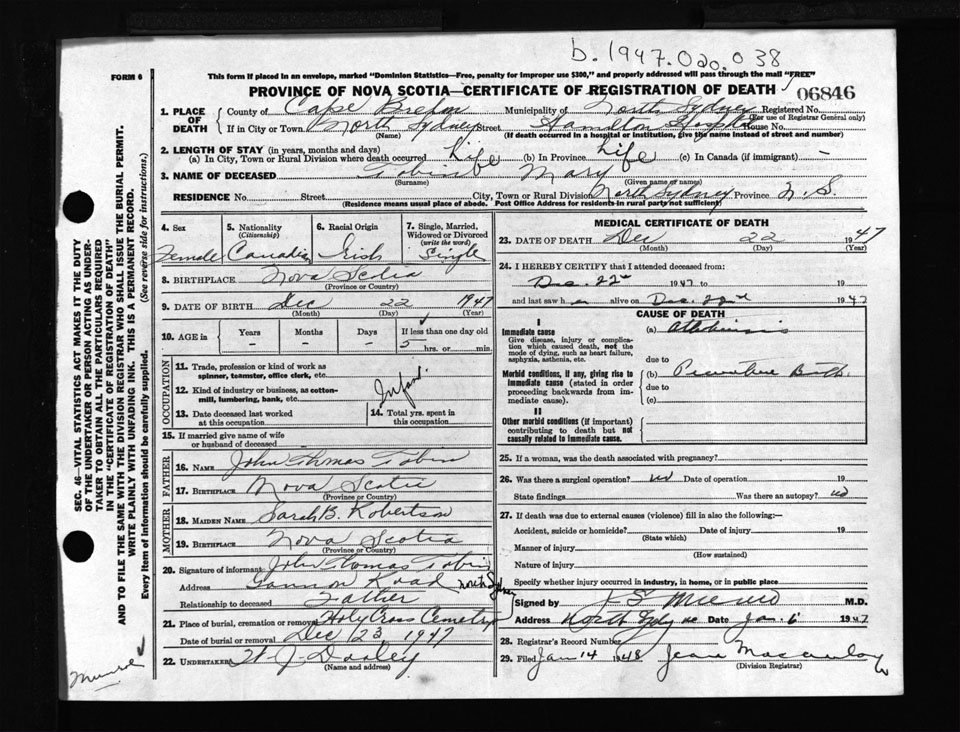 b. 1947.020.038
FORM 6
This form if placed in an envelope, marked "Dominion Statistics—Free, penalty for improper use $300," and properly addressed will pass through the mail "FREE"
PROVINCE OF NOVA SCOTIA—CERTIFICATE OF REGISTRATION OF DEATH
06846
1. PLACE OF DEATH
County of Cape Breton Municipality of North Sydney Registered No.
(For use of Registrar General only)
If in City or Town North Sydney Street Hamilton Hospital House No.
(Name) (If death occurred in a hospital or institution, give the name instead of street and number)
2. LENGTH OF STAY (in years, months and days)
(a) In City, Town or Rural Division where death occurred Life (b) In Province Life (c) In Canada (if immigrant) -
3. NAME OF DECEASED Tobin Mary
(Surname) (Given name or names)
RESIDENCE No. Street City, Town or Rural Division North Sydney Province N.S.
(Residence means usual place of abode. Post Office Address for residents in rural parts not sufficient)
4. Sex
Female
5. Nationality
(Citizenship)
Canadian
6. Racial Origin
Irish
7. Single, Married, Widowed or Divorced
(write the word)
Single
8. BIRTHPLACE Nova Scotia
(Province or Country)
9. DATE OF BIRTH Dec 22 1947
(Month) (Day) (Year)
10. AGE in
Years Months Days If less than one day old
- - - 5 hrs. or min.
OCCUPATION
11. Trade, profession or kind of work as spinner, teamster, office clerk, etc.
12. Kind of industry or business, as cotton-mill, lumbering, bank, etc.
Infant
13. Date deceased last worked at this occupation
14. Total yrs. spent in this occupation
15. If married give name of wife or husband of deceased -
FATHER
16. NAME John Thomas Tobin
17. BIRTHPLACE Nova Scotia
(Province or Country)
MOTHER
18. MAIDEN NAME Sarah B. Robertson
19. BIRTHPLACE Nova Scotia
(Province or Country)
20. Signature of informant John Thomas Tobin
Address Gannon Road North Sydney
Relationship to deceased Father
21. Place of burial, cremation or removal Holy Cross Cemetery
Date of burial or removal Dec 23 1947
22. UNDERTAKER W. J. Dooley
(Name and address)
MEDICAL CERTIFICATE OF DEATH
23. DATE OF DEATH Dec 22 1947
(Month) (Day) (Year)
24. I HEREBY CERTIFY that I attended deceased from:
Dec. 22nd 1947 to 19
and last saw h er alive on Dec. 22nd 1947
CAUSE OF DEATH
I
Immediate cause
Give disease, injury or complication which caused death, not the mode of dying, such as heart failure, asphyxia, asthenia, etc.
(a)
due to
Morbid conditions, if any, giving rise to immediate cause (stated in order proceeding backwards from immediate).
(b) Premature Birth
due to
(c)
II
Other morbid conditions (if important) contributing to death but not causally related to immediate cause.
25. If a woman, was the death associated with pregnancy?
26. Was there a surgical operation? no Date of operation 19
State findings Was there an autopsy? no
27. If death was due to external causes (violence) fill in also the following:—
Accident, suicide or homicide? Date of injury 19
(State which)
Manner of injury
(How sustained)
Nature of injury
Specify whether injury occurred in industry, in home, or in public place
Signed by M.D.
Address North Sydney Date Jan. 6 1947
28. Registrar's Record Number
29. Filed Jan 14 1948 Jean
(Division Registrar)
SEC. 46—VITAL STATISTICS ACT MAKES IT THE DUTY
OF THE UNDERTAKER OR PERSON ACTING AS UNDER-
TAKER TO OBTAIN ALL THE PARTICULARS REQUIRED
IN THE "CERTIFICATE OF REGISTRATION OF DEATH"
AND TO FILE THE SAME WITH THE DIVISION REGISTRAR WHO SHALL ISSUE THE BURIAL PERMIT.
WRITE PLAINLY WITH UNFADING INK. THIS IS A PERMANENT RECORD.
Every item of information should be carefully supplied. (See reverse side for instructions.)